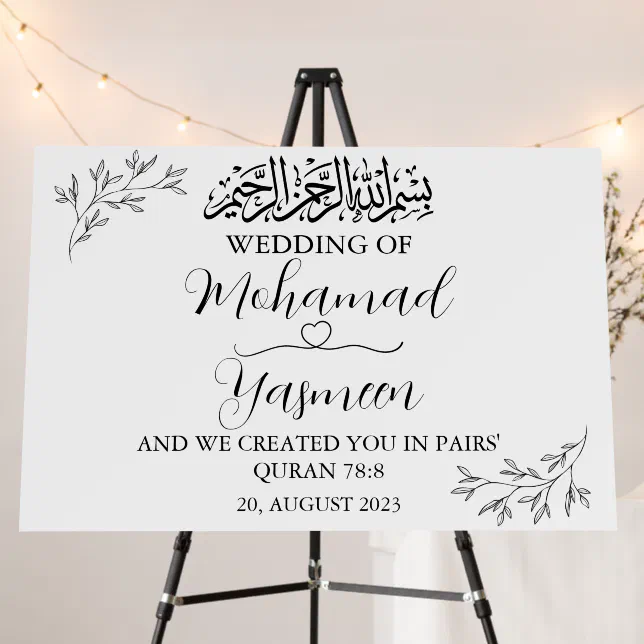 بسم الله الرحمن الرحيم
WEDDING OF
Mohamad
Yasmeen
AND WE CREATED YOU IN PAIRS'
QURAN 78:8
20, AUGUST 2023